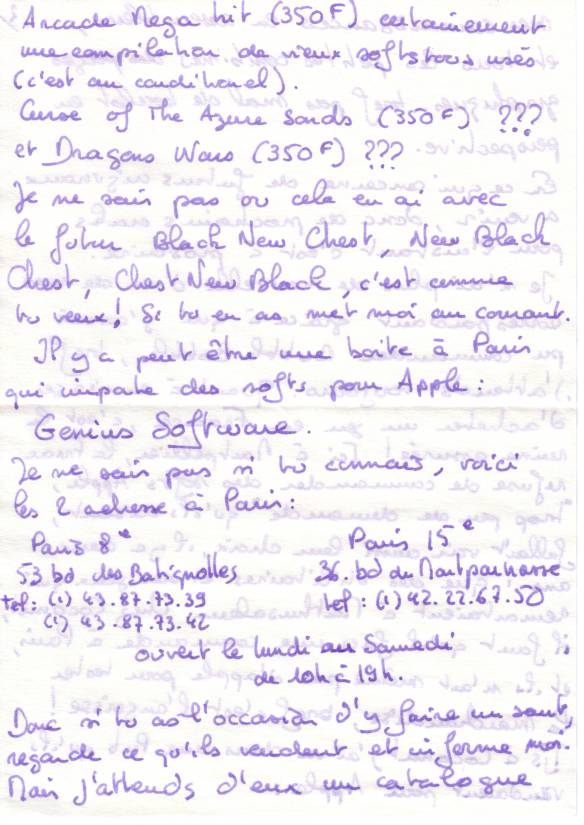 Arcade Mega hit (350F) certainement
une compilation de vieux softs tous usés
(c'est au conditionel).
Curse of The Azure Sands (350F) ???
et Dragons Wars (350F) ???
Je ne sais pas où cela en ai avec
le futur Black New Chest, New Black
Chest, Chest New Black, c'est comme
tu veux! Si tu en as met moi au courant.
Il y a peut être une boite à Paris
qui importe des softs pour Apple:
Genius Software.
Je ne sais pas si tu connais, voici
les 2 adresse à Paris:
Paris 8e Paris 15e
53 bd des Batignolles 36. bd du Montparnasse
tel: (1) 43.87.73.39 tel: (1) 42.22.67.50
(1) 43.87.73.42
ouvert le lundi au Samedi
de 10h à 19h.
Donc si tu as l'occasion d'y faire un saut,
regarde ce qu'ils vendent et informe moi.
Mais j'attends d'eux un catalogue